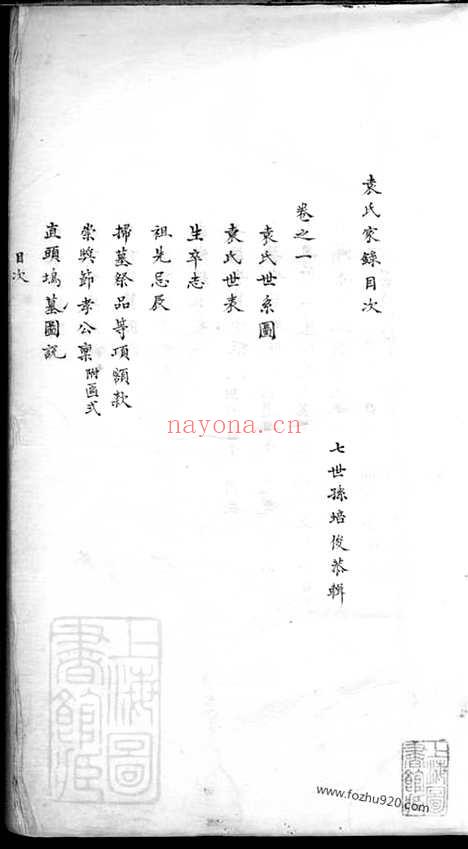 袁氏家錄目次
七世孫培俊恭輯
卷之一
袁氏世系圖
袁氏世表
生卒志
祖先忌辰
掃墓祭品等項額款
崇興節孝公稟附函式
直頭塢墓圖說
目次
nayona.cn
上海圖書館藏
上海圖書館藏
www.fozhu920.com